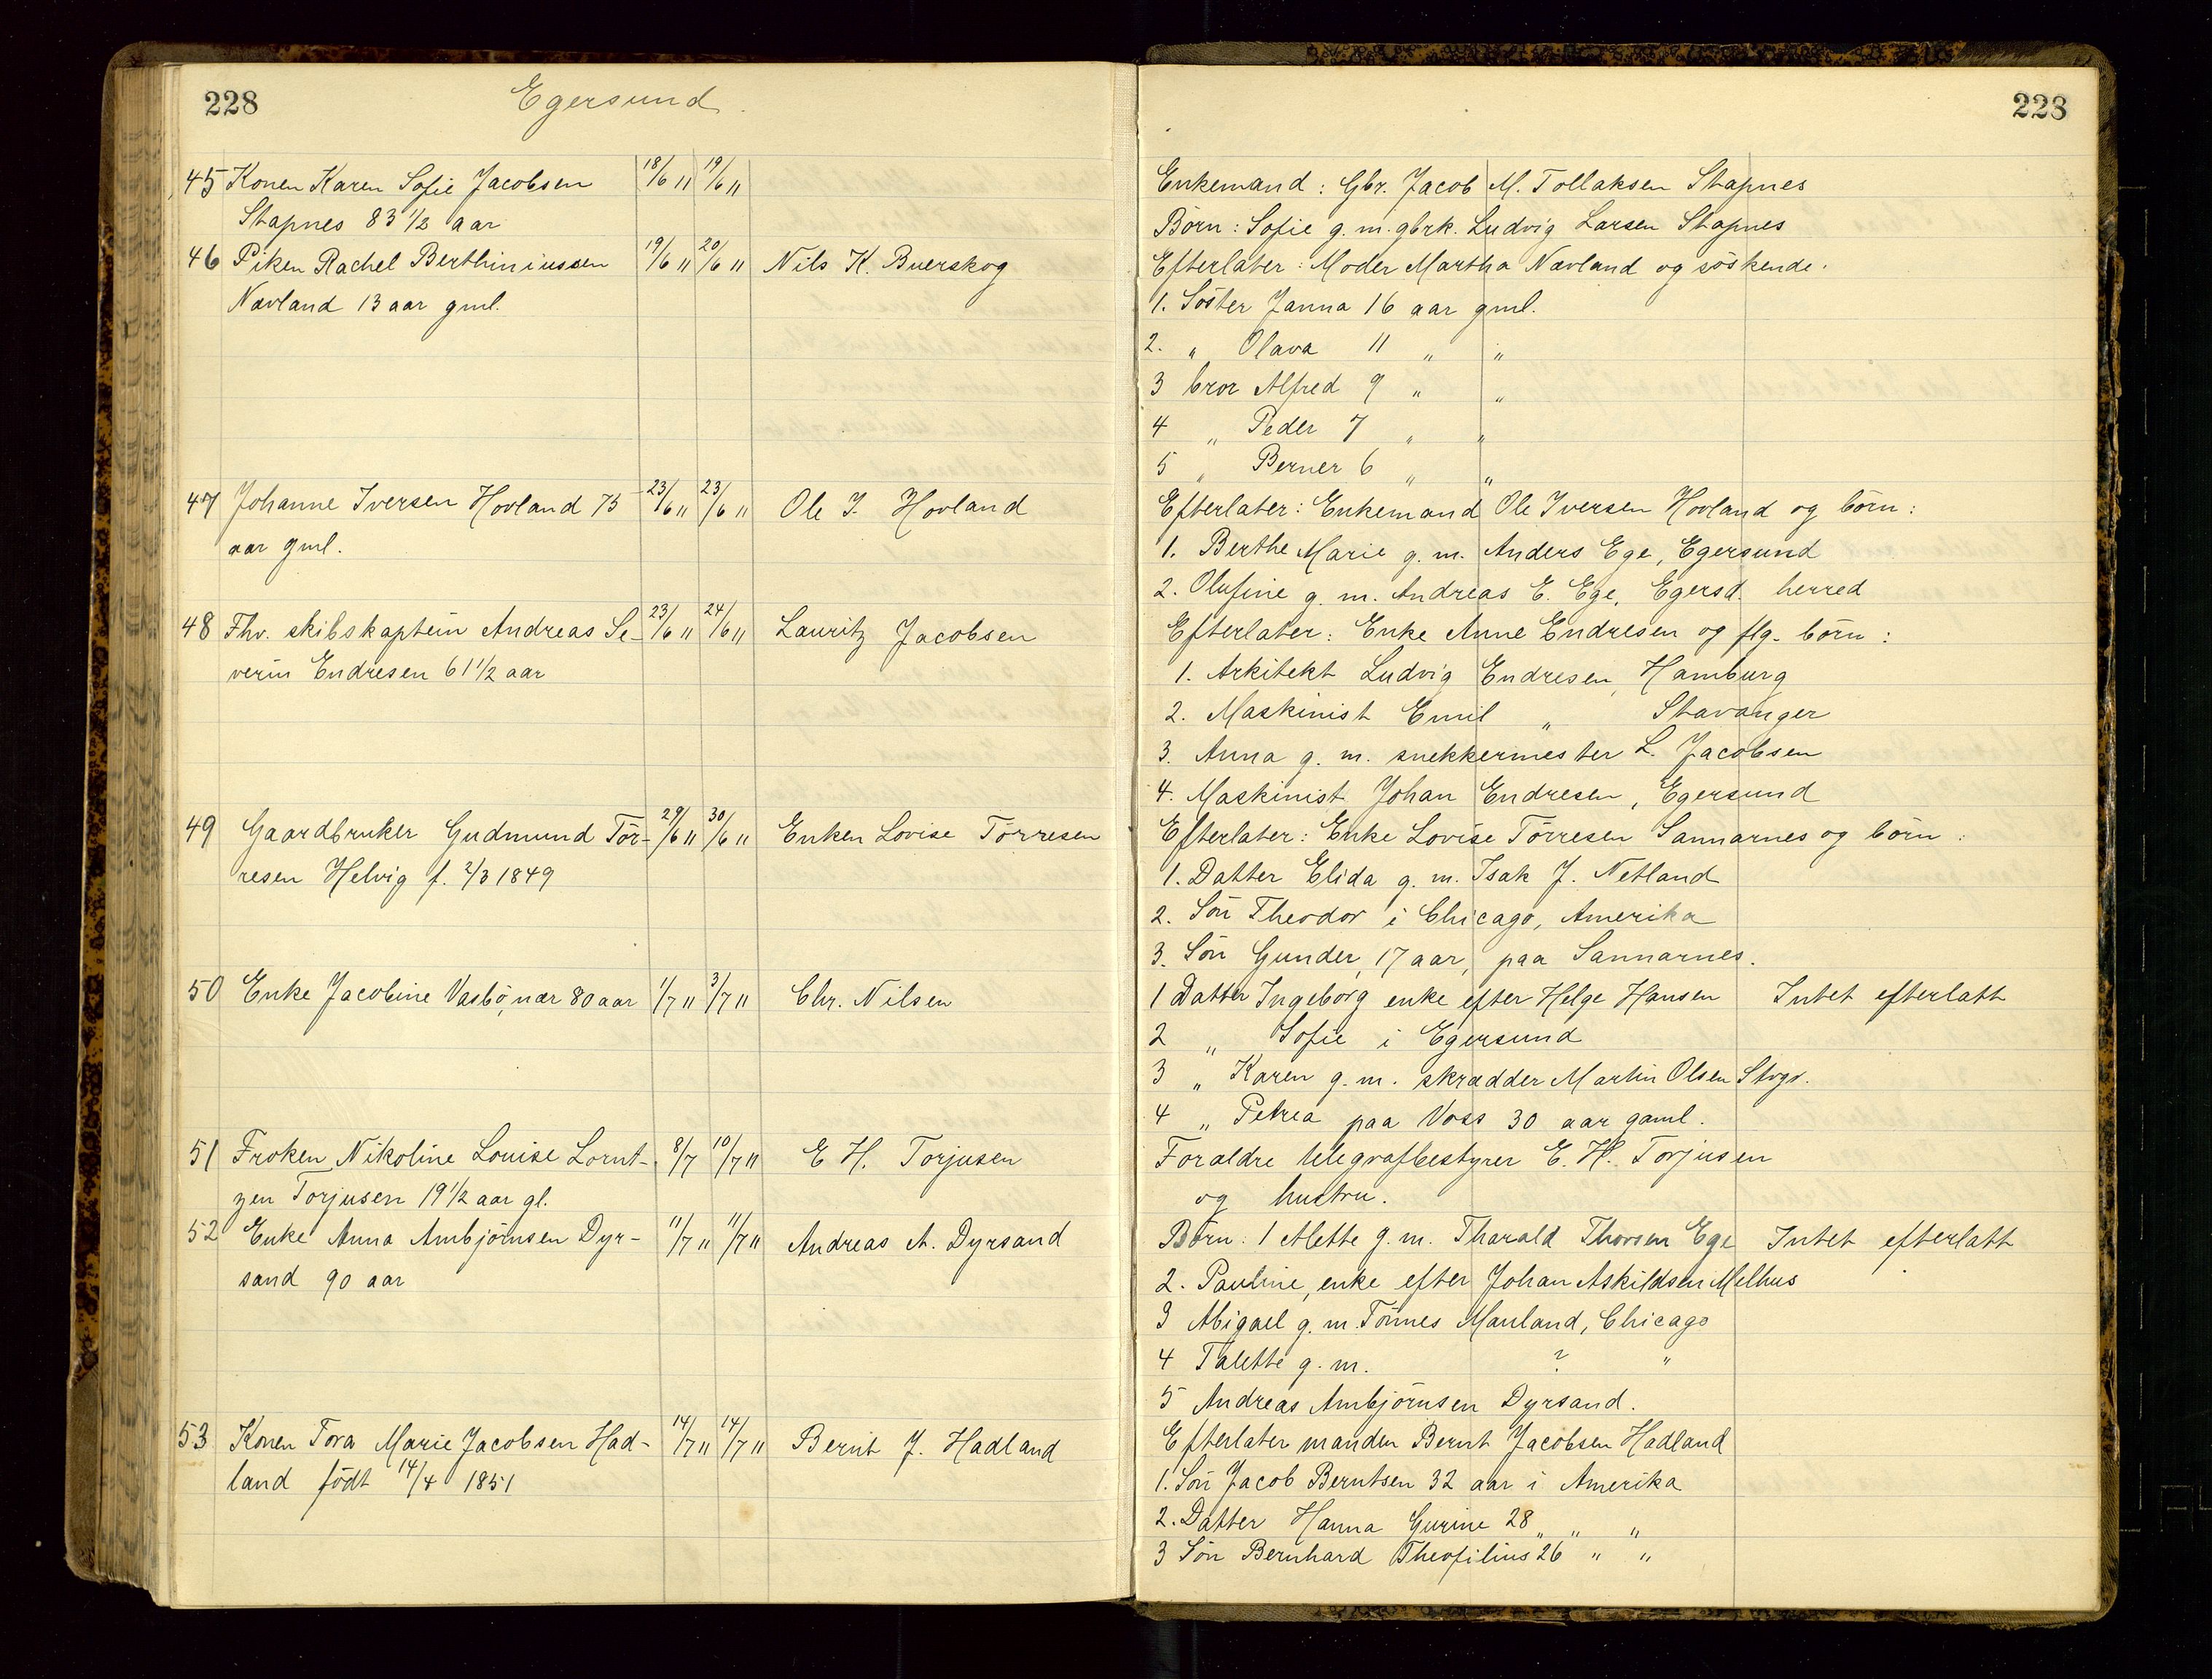 228
Egersund
45 Konen Karen Sofie Jacobsen 18/6 11 19/6 11
Stapnes 83 1/2 aar
46 Piken Rachel Berthiniussen 19/6 11 20/6 11 Nils K. Buerskog
Nævland 13 aar gml.
47 Johanne Iversen Hovland 75 23/6 11 23/6 11 Ole I. Hovland
aar gml.
48 Fhv. skibskaptein Andreas Se- 23/6 11 24/6 11 Lauritz Jacobsen
verin Endresen 61 1/2 aar
49 Gaardbruker Gudmund Tör- 29/6 11 30/6 11 Enken Lovise Törresen
resen Helvig f. 2/3 1849
50 Enke Jacobine Vasbö, nær 80 aar 1/7 11 3/7 11 Chr. Nilsen
51 Froken Nikoline Louise Lornt- 8/7 10/7 11 E H. Torjusen
zen Torjusen 19 1/2 aar gl.
52 Enke Anna Ambjörnsen Dyr- 11/7 11 11/7 11 Andreas A. Dyrsand
sand 90 aar
53 Konen Tora Marie Jacobsen Had- 14/7 11 14/7 11 Bernt J. Hadland
land födt 14/4 1851
228
Enkemand: Gbr. Jacob M. Tollaksen Stapnes
Börn: Sofie g. m. gbrk. Ludvig Larsen Stapnes
Efterlater: Moder Martha Nævland og söskende.
1. Söster Janna 16 aar gml.
2. " Olava 11 " "
3 bror Alfred 9 " "
4 " Peder 7 " "
5 " Berner 6 " "
Efterlater: Enkemand Ole Iversen Hovland og börn:
1. Berthe Marie g. m. Anders Ege, Egersund
2. Olufine g. m. Andreas E. Ege, Egersd. herred
Efterlater: Enke Anne Endresen og flg. börn:
1. Arkitekt Ludvig Endresen, Hamburg
2. Maskinist Emil " Stavanger
3. Anna g. m. snekkermester L. Jacobsen
4. Maskinist Johan Endresen, Egersund
Efterlater: Enke Lovise Törresen Sannarnes og börn:
1. Datter Elida g. m. Isak J. Netland
2. Sön Theodor i Chicago, Amerika
3. Sön Gunder, 17 aar, paa Sannarnes.
1 Datter Ingeborg enke efter Helge Hansen Intet efterlatt
2 " Sofie i Egersund
3 " Karen g. m. skrædder Martin Olsen Stvgr.
4 " Petrea paa Voss 30 aar gaml.
Foraldre telegrafbestyrer E. H. Torjusen
og hustru.
Börn: 1 Alette g. m. Tharald Thorsen Ege Intet efterlatt
2. Pauline, enke efter Johan Askildsen Melhus
3 Abigael g. m. Tönnes Mauland, Chicago
4 Talette g. m. ? "
5 Andreas Ambjörnsen Dyrsand.
Efterlater manden Bernt Jacobsen Hadland
1. Sön Jacob Berntsen 32 aar i Amerika
2. Datter Hanna Gurine 28 " " "
3 Sön Bernhard Theofilius 26 " "